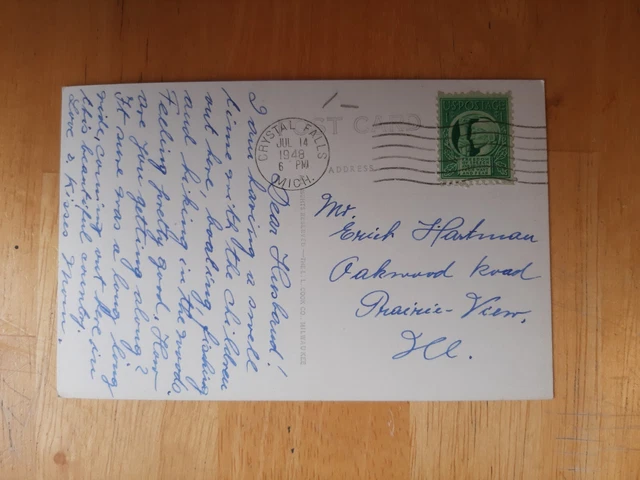 Dear Husband!
I am having a swell
time with the children
out here, boating, fishing
and hiking in the woods
Feeling pretty good, How
are you getting along?
It sure was a long long
ride, coming out here in
this beautiful country.
Love & Kisses Mom.
1-
POST CARD
CRYSTAL FALLS
JUL 14
1948
6 PM
MICH.
ADDRESS
U.S. POSTAGE
1¢
Mr.
Erich Hartman
Oakwood Road
Prairie-View,
Ill.